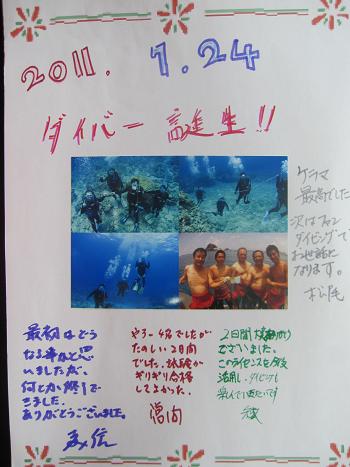 2011. 1.24
ダイバー誕生!!
ケラマ
最高でした
次はファン
ダイビングで
お世話に
なります。
最初はどう
なる事かと思
いましたが、
何とか終了で
きました。
ありがとうございました。
やろー4名でしたが
たのしい2日間
でした。試験が
ギリギリ合格
してよかった。
2日間
ございました。
このライセンスを今後
活用し、ダイビングを
楽しんでいきたいです